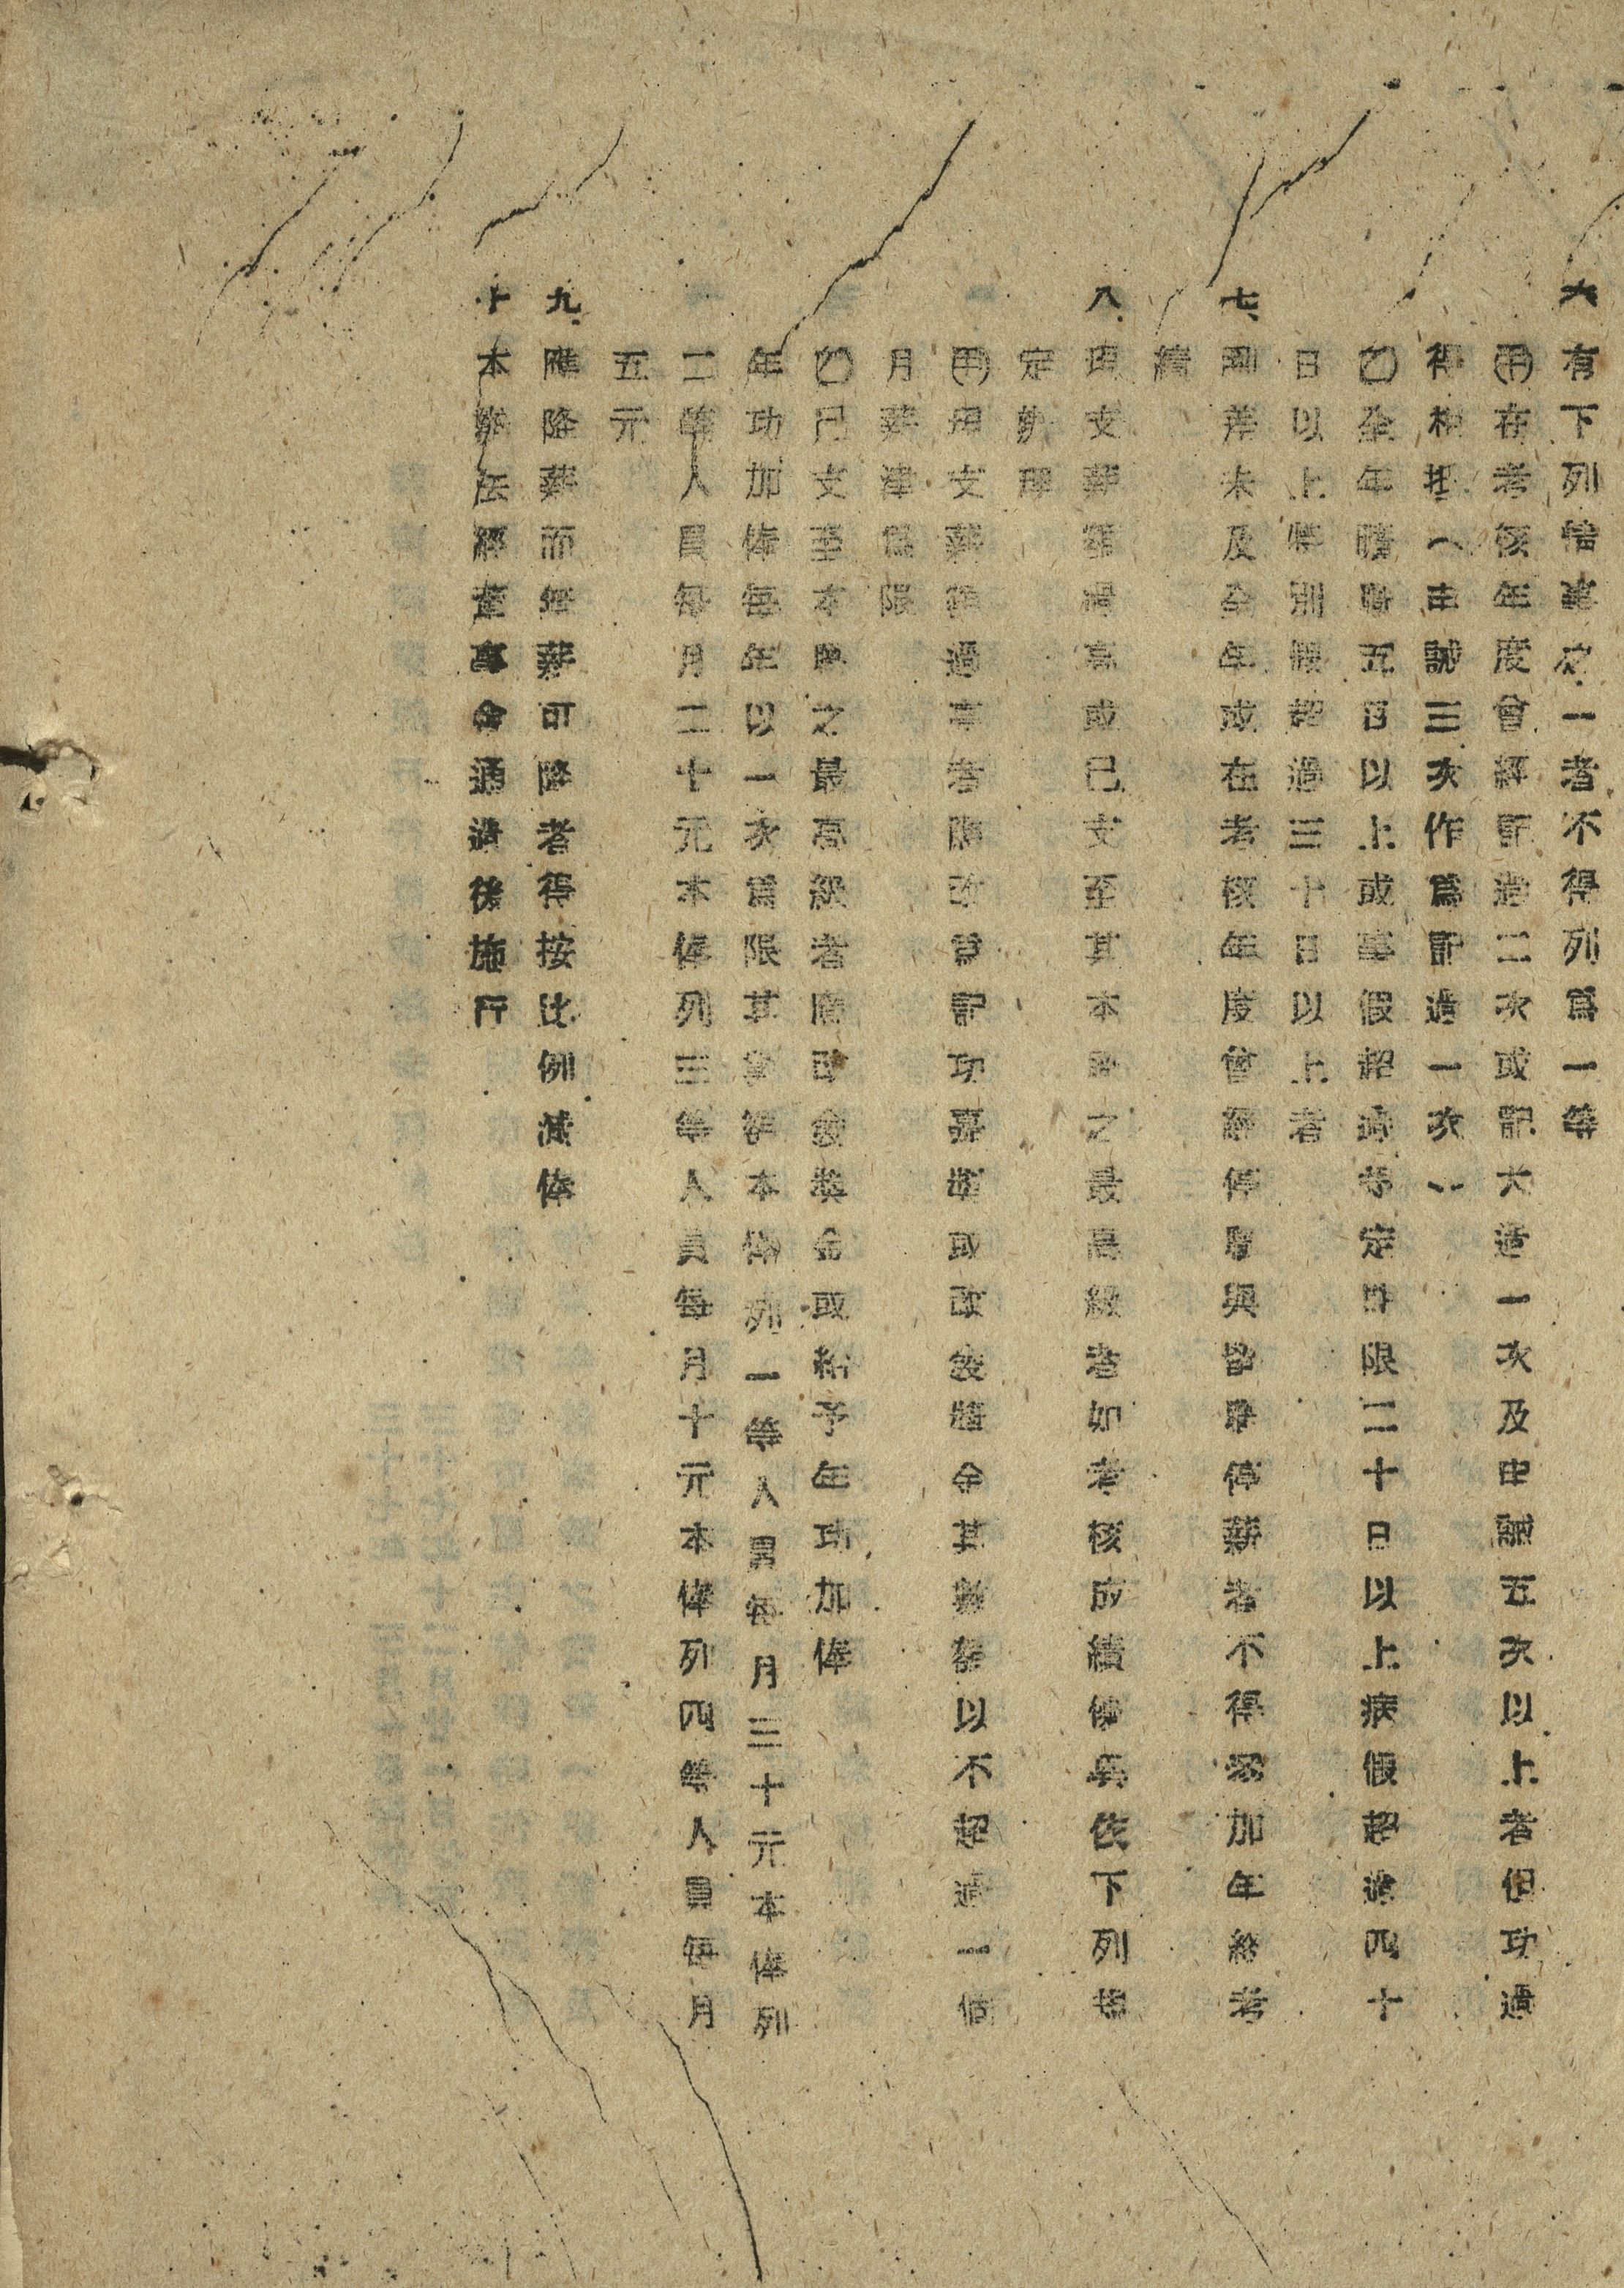 六、有下列情事之一者不得列爲一等
㈙在考核年度曾經記過二次或記大過一次及申誡五次以上者但功過
得相抵（申誡三次作爲記過一次）
㈚全年曠職五日以上或事假超過規定期限二十日以上病假超過四十
日以上特別假超過三十日以上者
七、到差未及全年或在考核年度曾經停職與留職停薪者不得參加年終考
績
八、現支薪額過高或已支至其本職之最高級者如考核成績優異依下列規
定辦理
㈙現支薪額過高者應改爲記功嘉獎或改發獎金其數額以不超過一個
月薪津爲限
㈚已支至本職之最高級者應改發獎金或給予年功加俸
年功加俸每年以一次爲限其數額本俸列一等人員每月三十元本俸列
二等人員每月二十元本俸列三等人員每月十元本俸列四等人員每月
五元
九、應降薪而無薪可降者得按比例減俸
十、本辦法經董事會通過後施行